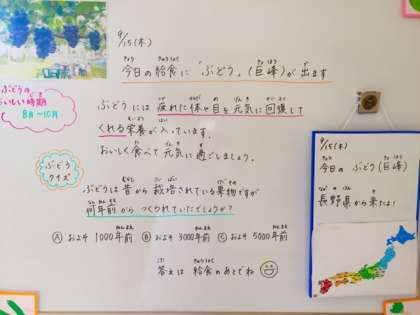 9/15(木)
今日の給食に「ぶどう」(巨峰)が出ます
ぶどうの
おいしい時期
8月〜10月
ぶどうには 疲れた体や目を元気に回復して
くれる栄養が入っています。
おいしく食べて元気に過ごしましょう。
ぶどう
クイズ
ぶどうは昔から栽培されている果物ですが
何年前からつくられていたでしょうか?
Ⓐ およそ1000年前 Ⓑ およそ3000年前 Ⓒ およそ5000年前
答えは 給食のあとでね
9/15(木)
今日の ぶどう(巨峰)
長野県から来たよ!